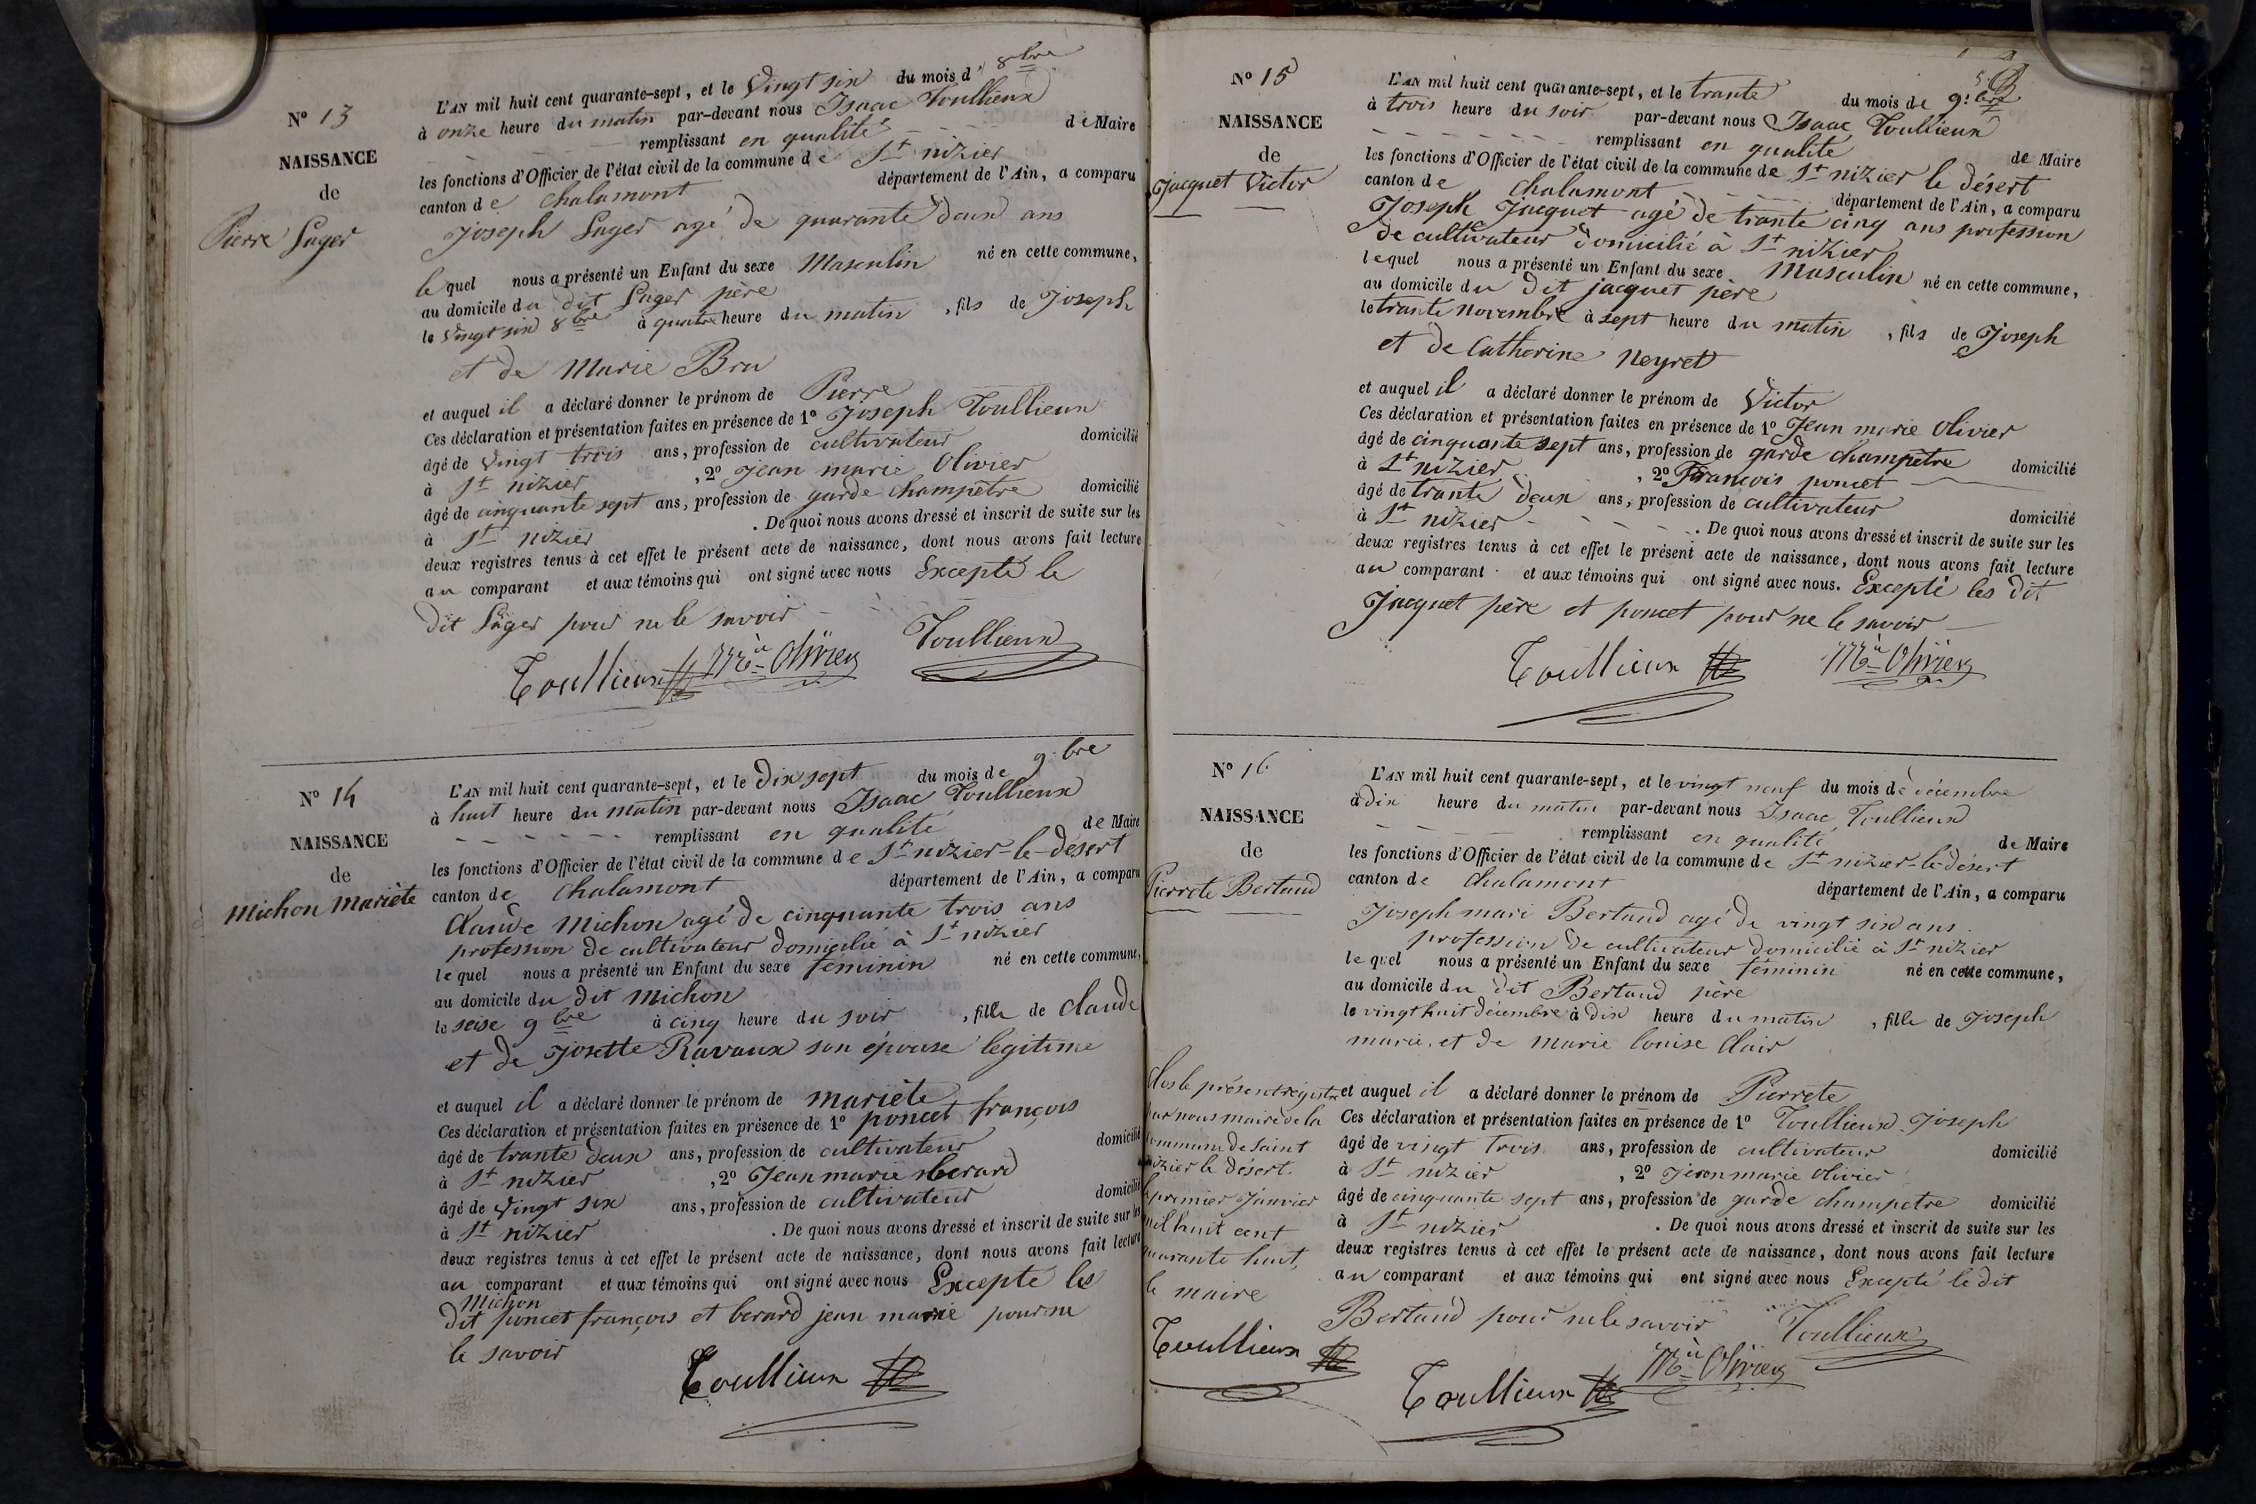 N° 13
NAISSANCE
de
Pierre Luger
L'AN mil huit cent quarante-sept, et le Vingt six du mois d' 8bre
à onze heure du matin par-devant nous Isaac Toullieux
remplissant en qualité de Maire
les fonctions d'Officier de l'état civil de la commune de St nizier
canton de Chalamont département de l'Ain, a comparu
Joseph Luger agé de quarante deux ans
le quel nous a présenté un Enfant du sexe Masculin né en cette commune,
au domicile du dit Luger père
le Vingt six 8bre à quatre heure du matin, fils de Joseph
et de Marie Bru
et auquel il a déclaré donner le prénom de Pierre
Ces déclaration et présentation faites en présence de 1° Joseph Toullieux
âgé de Vingt trois ans, profession de cultivateur domicilié
à St nizier, 2° Jean marie Olivier
âgé de cinquante sept ans, profession de garde champêtre domicilié
à St nizier. De quoi nous avons dressé et inscrit de suite sur les
deux registres tenus à cet effet le présent acte de naissance, dont nous avons fait lecture
au comparant et aux témoins qui ont signé avec nous Excepté le
dit Luger pour ne le savoir
Toullieux Mie Olivier Toullieux
N° 14
NAISSANCE
de
Michon Mariète
L'AN mil huit cent quarante-sept, et le Dix sept du mois de 9bre
à huit heure du matin par-devant nous Isaac Toullieux
remplissant en qualité de Maire
les fonctions d'Officier de l'état civil de la commune de St nizier-le-désert
canton de Chalamont département de l'Ain, a comparu
Claude Michon agé de cinquante trois ans
profession de cultivateur domicilié à St nizier
le quel nous a présenté un Enfant du sexe féminin né en cette commune,
au domicile du dit Michon
le seise 9bre à cinq heure du soir, fille de Claude
et de Josette Ravaux son épouse legitime
et auquel il a déclaré donner le prénom de mariète
Ces déclaration et présentation faites en présence de 1° poncet françois
âgé de trante deux ans, profession de cultivateur domicilié
à St nizier, 2° Jean marie berard
âgé de Vingt six ans, profession de cultivateur domicilié
à St nizier. De quoi nous avons dressé et inscrit de suite sur les
deux registres tenus à cet effet le présent acte de naissance, dont nous avons fait lecture
au comparant et aux témoins qui ont signé avec nous Excepté les
Michon
dit poncet françois et berard jean marie pour ne
le savoir
Toullieux
N° 15
NAISSANCE
de
Jacquet Victor
L'AN mil huit cent quarante-sept, et le trante du mois de 9bre
à trois heure du soir par-devant nous Isaac Toullieux
remplissant en qualité de Maire
les fonctions d'Officier de l'état civil de la commune de St nizier le désert
canton de Chalamont département de l'Ain, a comparu
Joseph Jacquet agé de trante cinq ans profession
de cultivateur domicilié à St nizier
lequel nous a présenté un Enfant du sexe Masculin né en cette commune,
au domicile du dit jacquet père
le trante novembre à sept heure du matin, fils de Joseph
et de Catherine Neyret
et auquel il a déclaré donner le prénom de Victor
Ces déclaration et présentation faites en présence de 1° Jean marie Olivier
âgé de cinquante sept ans, profession de garde champêtre domicilié
à St nizier, 2° François poncet
âgé de trante deux ans, profession de cultivateur domicilié
à St nizier. De quoi nous avons dressé et inscrit de suite sur les
deux registres tenus à cet effet le présent acte de naissance, dont nous avons fait lecture
au comparant et aux témoins qui ont signé avec nous. Excepté les dit
Jacquet père et poncet pour ne le savoir
Toullieux Mie Olivier
N° 16
NAISSANCE
de
Pierrete Bertaud
L'AN mil huit cent quarante-sept, et le vingt neuf du mois de décembre
à dix heure du matin par-devant nous Isaac Toullieux
remplissant en qualité de Maire
les fonctions d'Officier de l'état civil de la commune de St nizier-le-désert
canton de Chalamont département de l'Ain, a comparu
Joseph mari Bertaud agé de vingt six ans
profession de cultivateur domicilié à St nizier
le quel nous a présenté un Enfant du sexe féminin né en cette commune,
au domicile du dit Bertaud père
le vingt huit décembre à dix heure du matin, fille de Joseph
marie, et de marie louise Clair
et auquel il a déclaré donner le prénom de Pierrete
Ces déclaration et présentation faites en présence de 1° Toullieux Joseph
âgé de vingt trois ans, profession de cultivateur domicilié
à St nizier, 2° Jean marie Olivier
âgé de cinquante sept ans, profession de garde champetre domicilié
à St nizier. De quoi nous avons dressé et inscrit de suite sur les
deux registres tenus à cet effet le présent acte de naissance, dont nous avons fait lecture
au comparant et aux témoins qui ont signé avec nous Excepté le dit
Bertaud pour ne le savoir Toullieux
Toullieux Mie Olivier
Clos le présent régistre
par nous maire de la
commune de saint
nizier le désert.
le premier Janvier
mil huit cent
quarante huit,
le maire
Toullieux